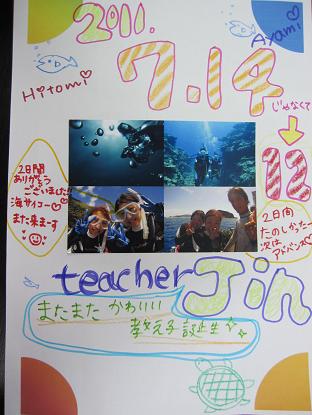 2011.
Ayami♡
Hitomi♡
7.14
じゃなくて
↓
12
2日間
ありがとう
ございました!!
海サイコー♡
また来まーす
2日間
たのしかったー
次は
アドバンス♡
teacher Jin
またまた かわいい
教え子誕生